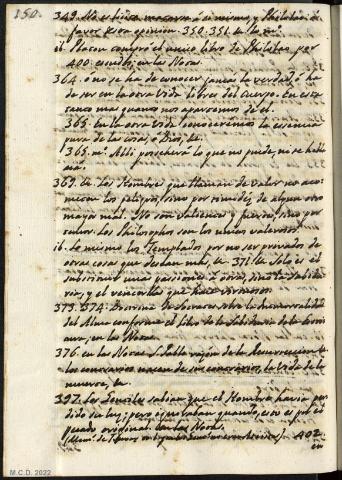 150.
favor de su opinion. 350. 351. en la m.
ib. Platon compró el unico libro de Philolao por
400. escudos, en las Notas.
364. ó no se ha de conocer jamas la verdad, ó ha
de ser en la otra Vida libres del Cuerpo. En esta
tanto mas quanto nos apartamos de el.
365. En la otra Vida conoceremos la esencia
pura de las cosas, ó Dios, &c.
365. m. Alli poseherá lo que no puede, no se
369. los Hombres que llaman de valor no aco-
meten los peligros, sino por timidez de algun otro
mayor mal. No son valientes y fuertes, sino por
los Philosophos son los unicos valerosos.
ib. lo mismo los Templados por no ser privados de
otras cosas que desean mas, &c. 371. &c. Solo es el
substituir una pasion á otra,
y el vencerlas que hace virtuosos.
373. 374. Doctrina de Socrates sobre la Inmortalidad
del Alma conforme al Libro de la Sabiduria de la
en las Notas.
376. en las Notas S. Pablo razon de la Resurreccion &c.
los contrarios nacen de sus contrarios, la Vida de la
muerte, &c.
397. los Gentiles sabian que el Hombre havia per-
dido su luz; pero ignoraban quando, esto es por el
pecado original. en las Notas.
402.